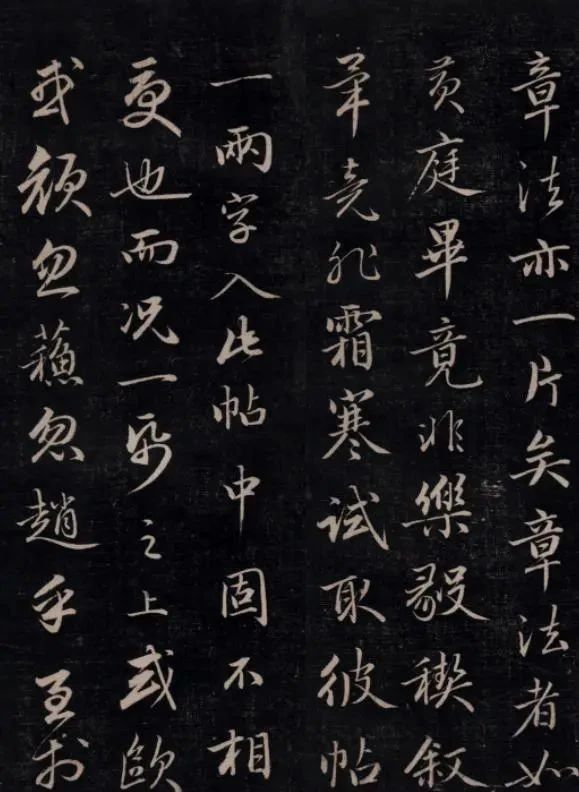 章法亦一片矣章法者如
黄庭畢竟非樂毅禊叙
畢竟非霜寒試取彼帖
一兩字入此帖中固不相
也而況一帋之上或歐
或顔忽蘓忽趙乎至於